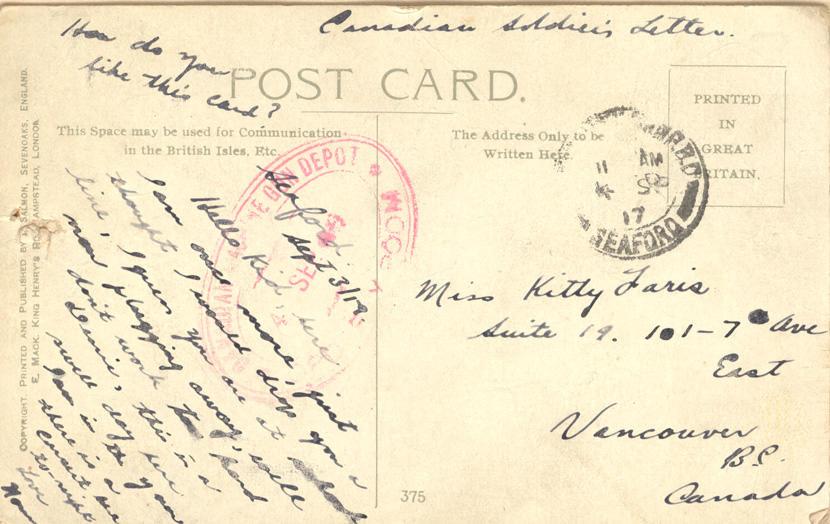 Canadian Soldier's Letter.
How do you
like this card?
POST CARD.
This Space may be used for Communication
in the British Isles, Etc.
The Address Only to be
Written Here.
PRINTED
IN
GREAT
BRITAIN.
COPYRIGHT. PRINTED AND PUBLISHED BY J. SALMON, SEVENOAKS, ENGLAND.
E. MACK, KING HENRY'S ROAD, HAMPSTEAD, LONDON
11 AM
4 SP
17
SEAFORD
DEPOT
Seaford
Sept 3/19
Hello Kid,
I am once more just
thought I would drop you a
line, I guess you are at
now plugging away, well
don't work too hard
this is a
swell day
I am in the
there is a
concert
to night
Love
Miss Kitty Faris
Suite 19. 101-7 Ave
East
Vancouver
B.C.
Canada
375